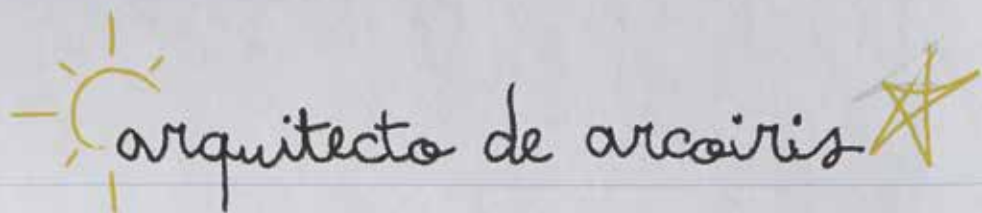 arquitecto de arcoiris